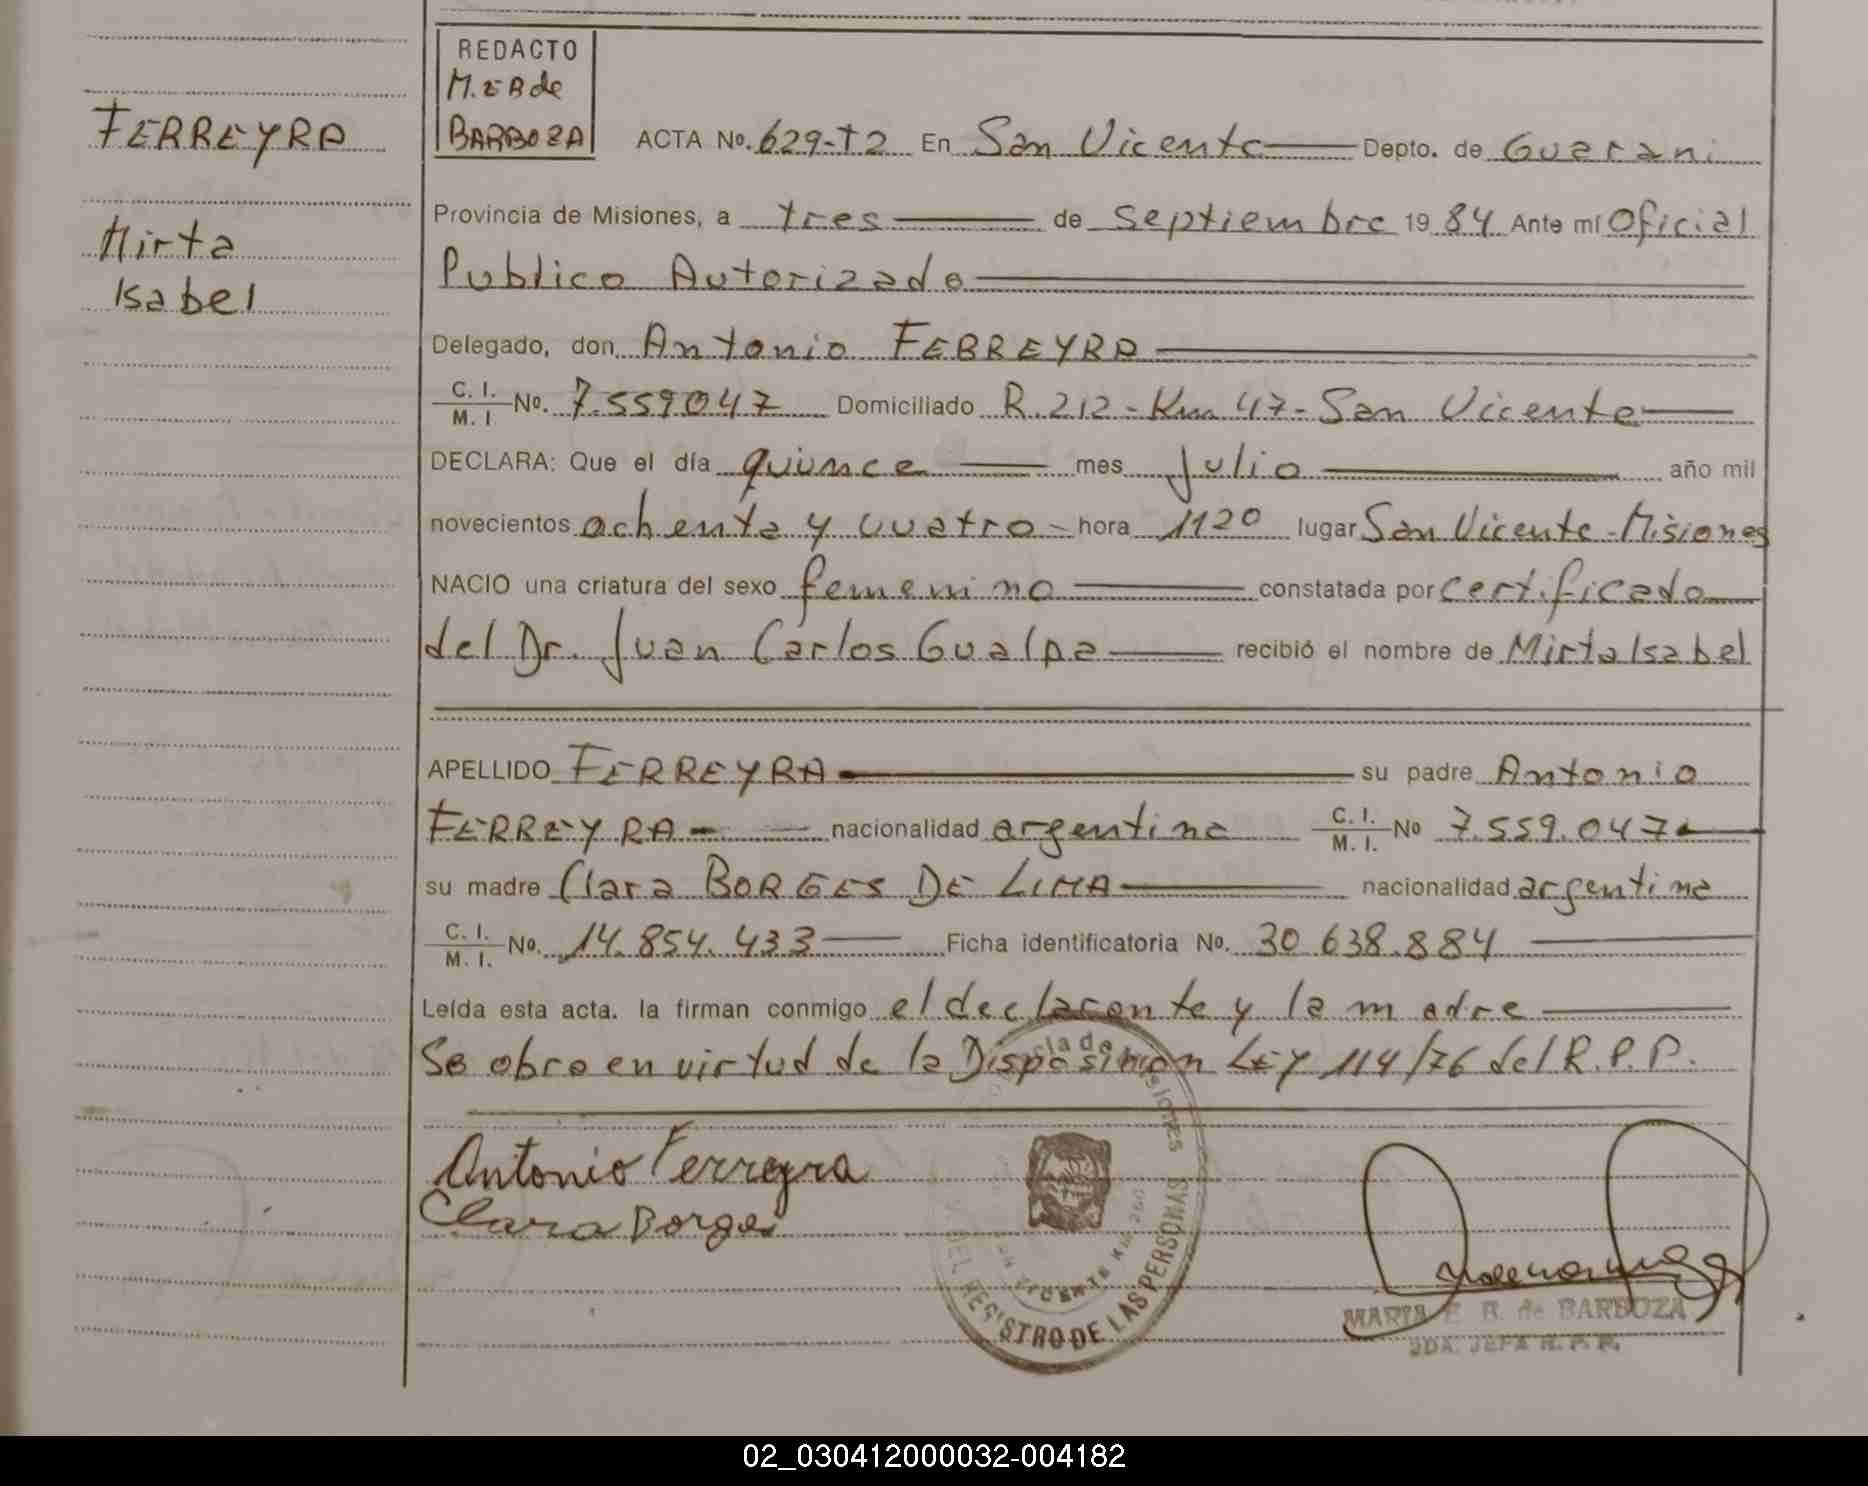 FERREYRA
Mirta
Isabel
REDACTO
M.EB de
BARBOZA
ACTA No. 629-T2 En San Vicente Depto. de Guarani
Provincia de Misiones, a tres de septiembre 1984 Ante mí Oficial
Publico Autorizado
Delegado, don Antonio FERREYRA
C. I. / M. I No. 7.559047 Domiciliado R.212-Km 47-San Vicente
DECLARA: Que el día quince mes Julio año mil
novecientos ochenta y cuatro hora 1120 lugar San Vicente-Misiones
NACIO una criatura del sexo femenino constatada por certificado
del Dr. Juan Carlos Gualpa recibió el nombre de Mirta Isabel
APELLIDO FERREYRA su padre Antonio
FERREYRA nacionalidad argentina C. I. / M. I. No 7.559.047
su madre Clara BORGES DE LIMA nacionalidad argentina
C. I. / M. I. No. 14.854.433 Ficha identificatoria No. 30.638.884
Leída esta acta. la firman conmigo el declarante y la madre
Se obra en virtud de la Disposición LEY 114/76 del R.P.P.
Antonio Ferreyra
Clara Borges
DEL REGISTRO DE LAS PERSONAS
MARIA E. B. de BARBOZA
JEFA R. P. P.
02_030412000032-004182